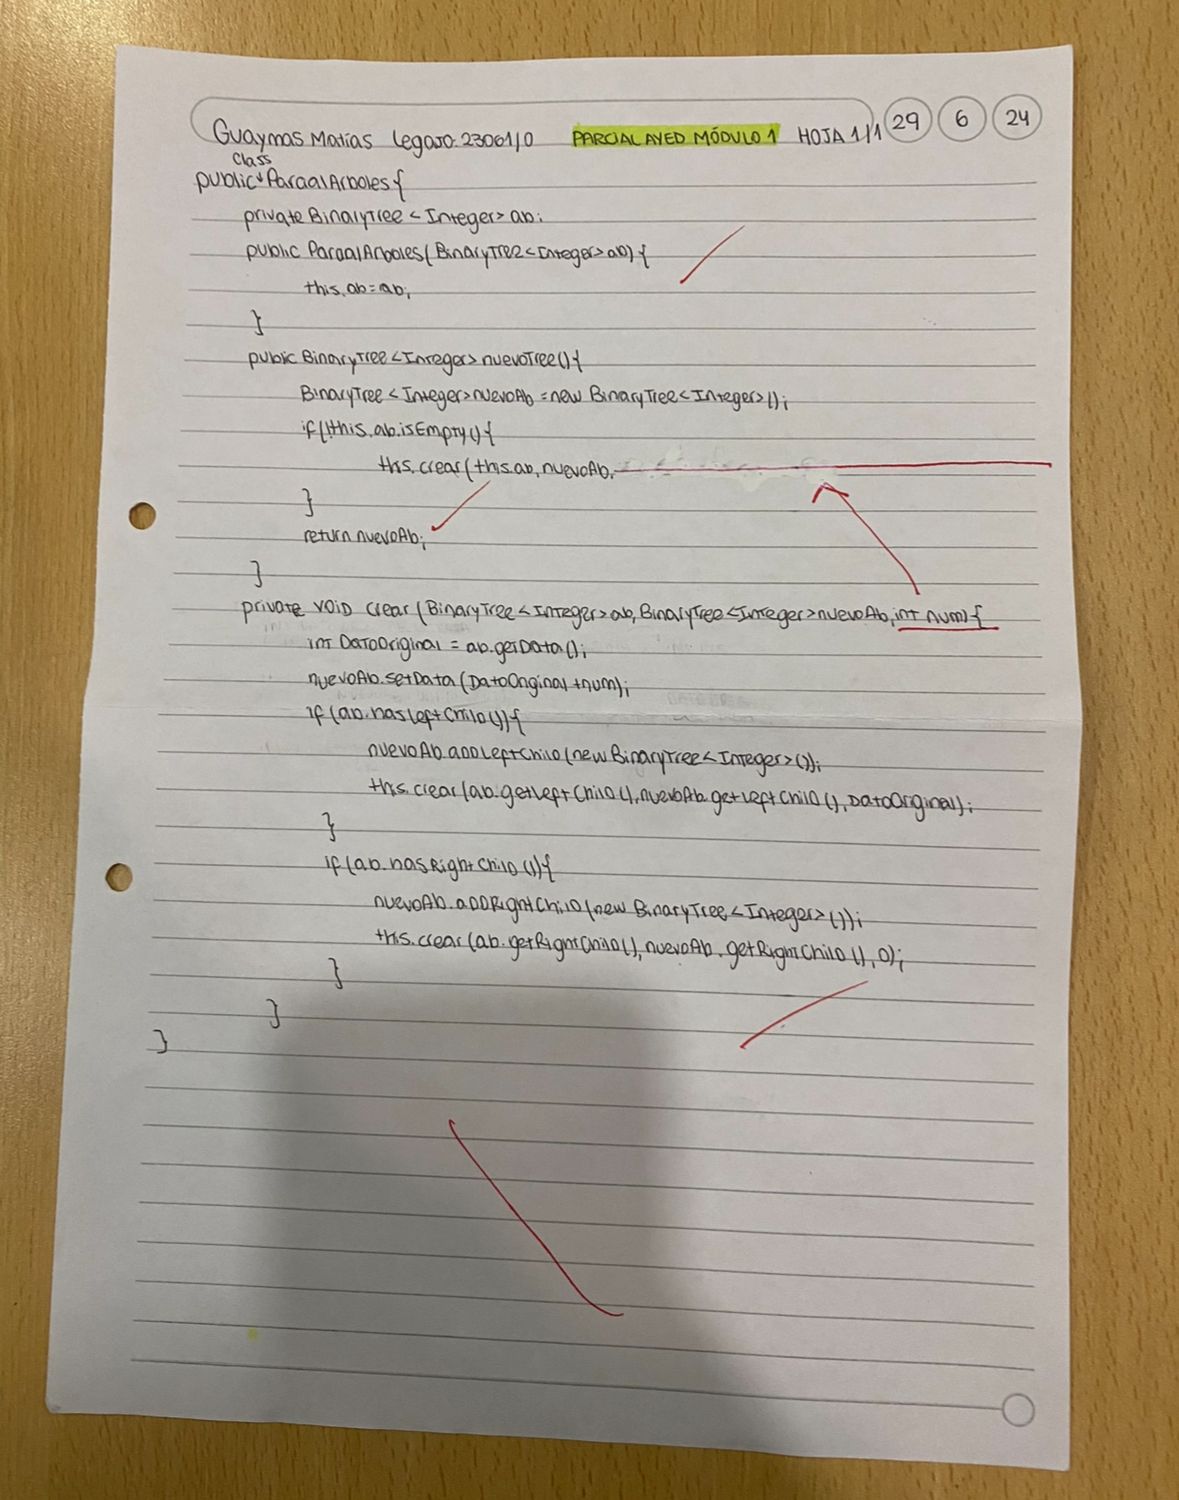 Guaymas Matías Legajo 23061/0 PARCIAL AYED MÓDULO 1 HOJA 1/1 29 6 24
class
public ParcialArboles{
private BinaryTree<Integer> ab;
public ParcialArboles(BinaryTree<Integer> ab){
this.ab=ab;
}
public BinaryTree<Integer> nuevoTree(){
BinaryTree<Integer> nuevoAb = new BinaryTree<Integer>();
if(!this.ab.isEmpty(){
this.crear(this.ab, nuevoAb,
}
return nuevoAb;
}
private void crear(BinaryTree<Integer> ab, BinaryTree<Integer> nuevoAb, int num){
int DatoOriginal = ab.getData();
nuevoAb.setData(DatoOriginal+num);
if(ab.hasLeftChild()){
nuevoAb.addLeftChild(new BinaryTree<Integer>());
this.crear(ab.getLeftChild(), nuevoAb.getLeftChild(), DatoOriginal);
}
if(ab.hasRightChild()){
nuevoAb.addRightChild(new BinaryTree<Integer>());
this.crear(ab.getRightChild(), nuevoAb.getRightChild(), 0);
}
}
}